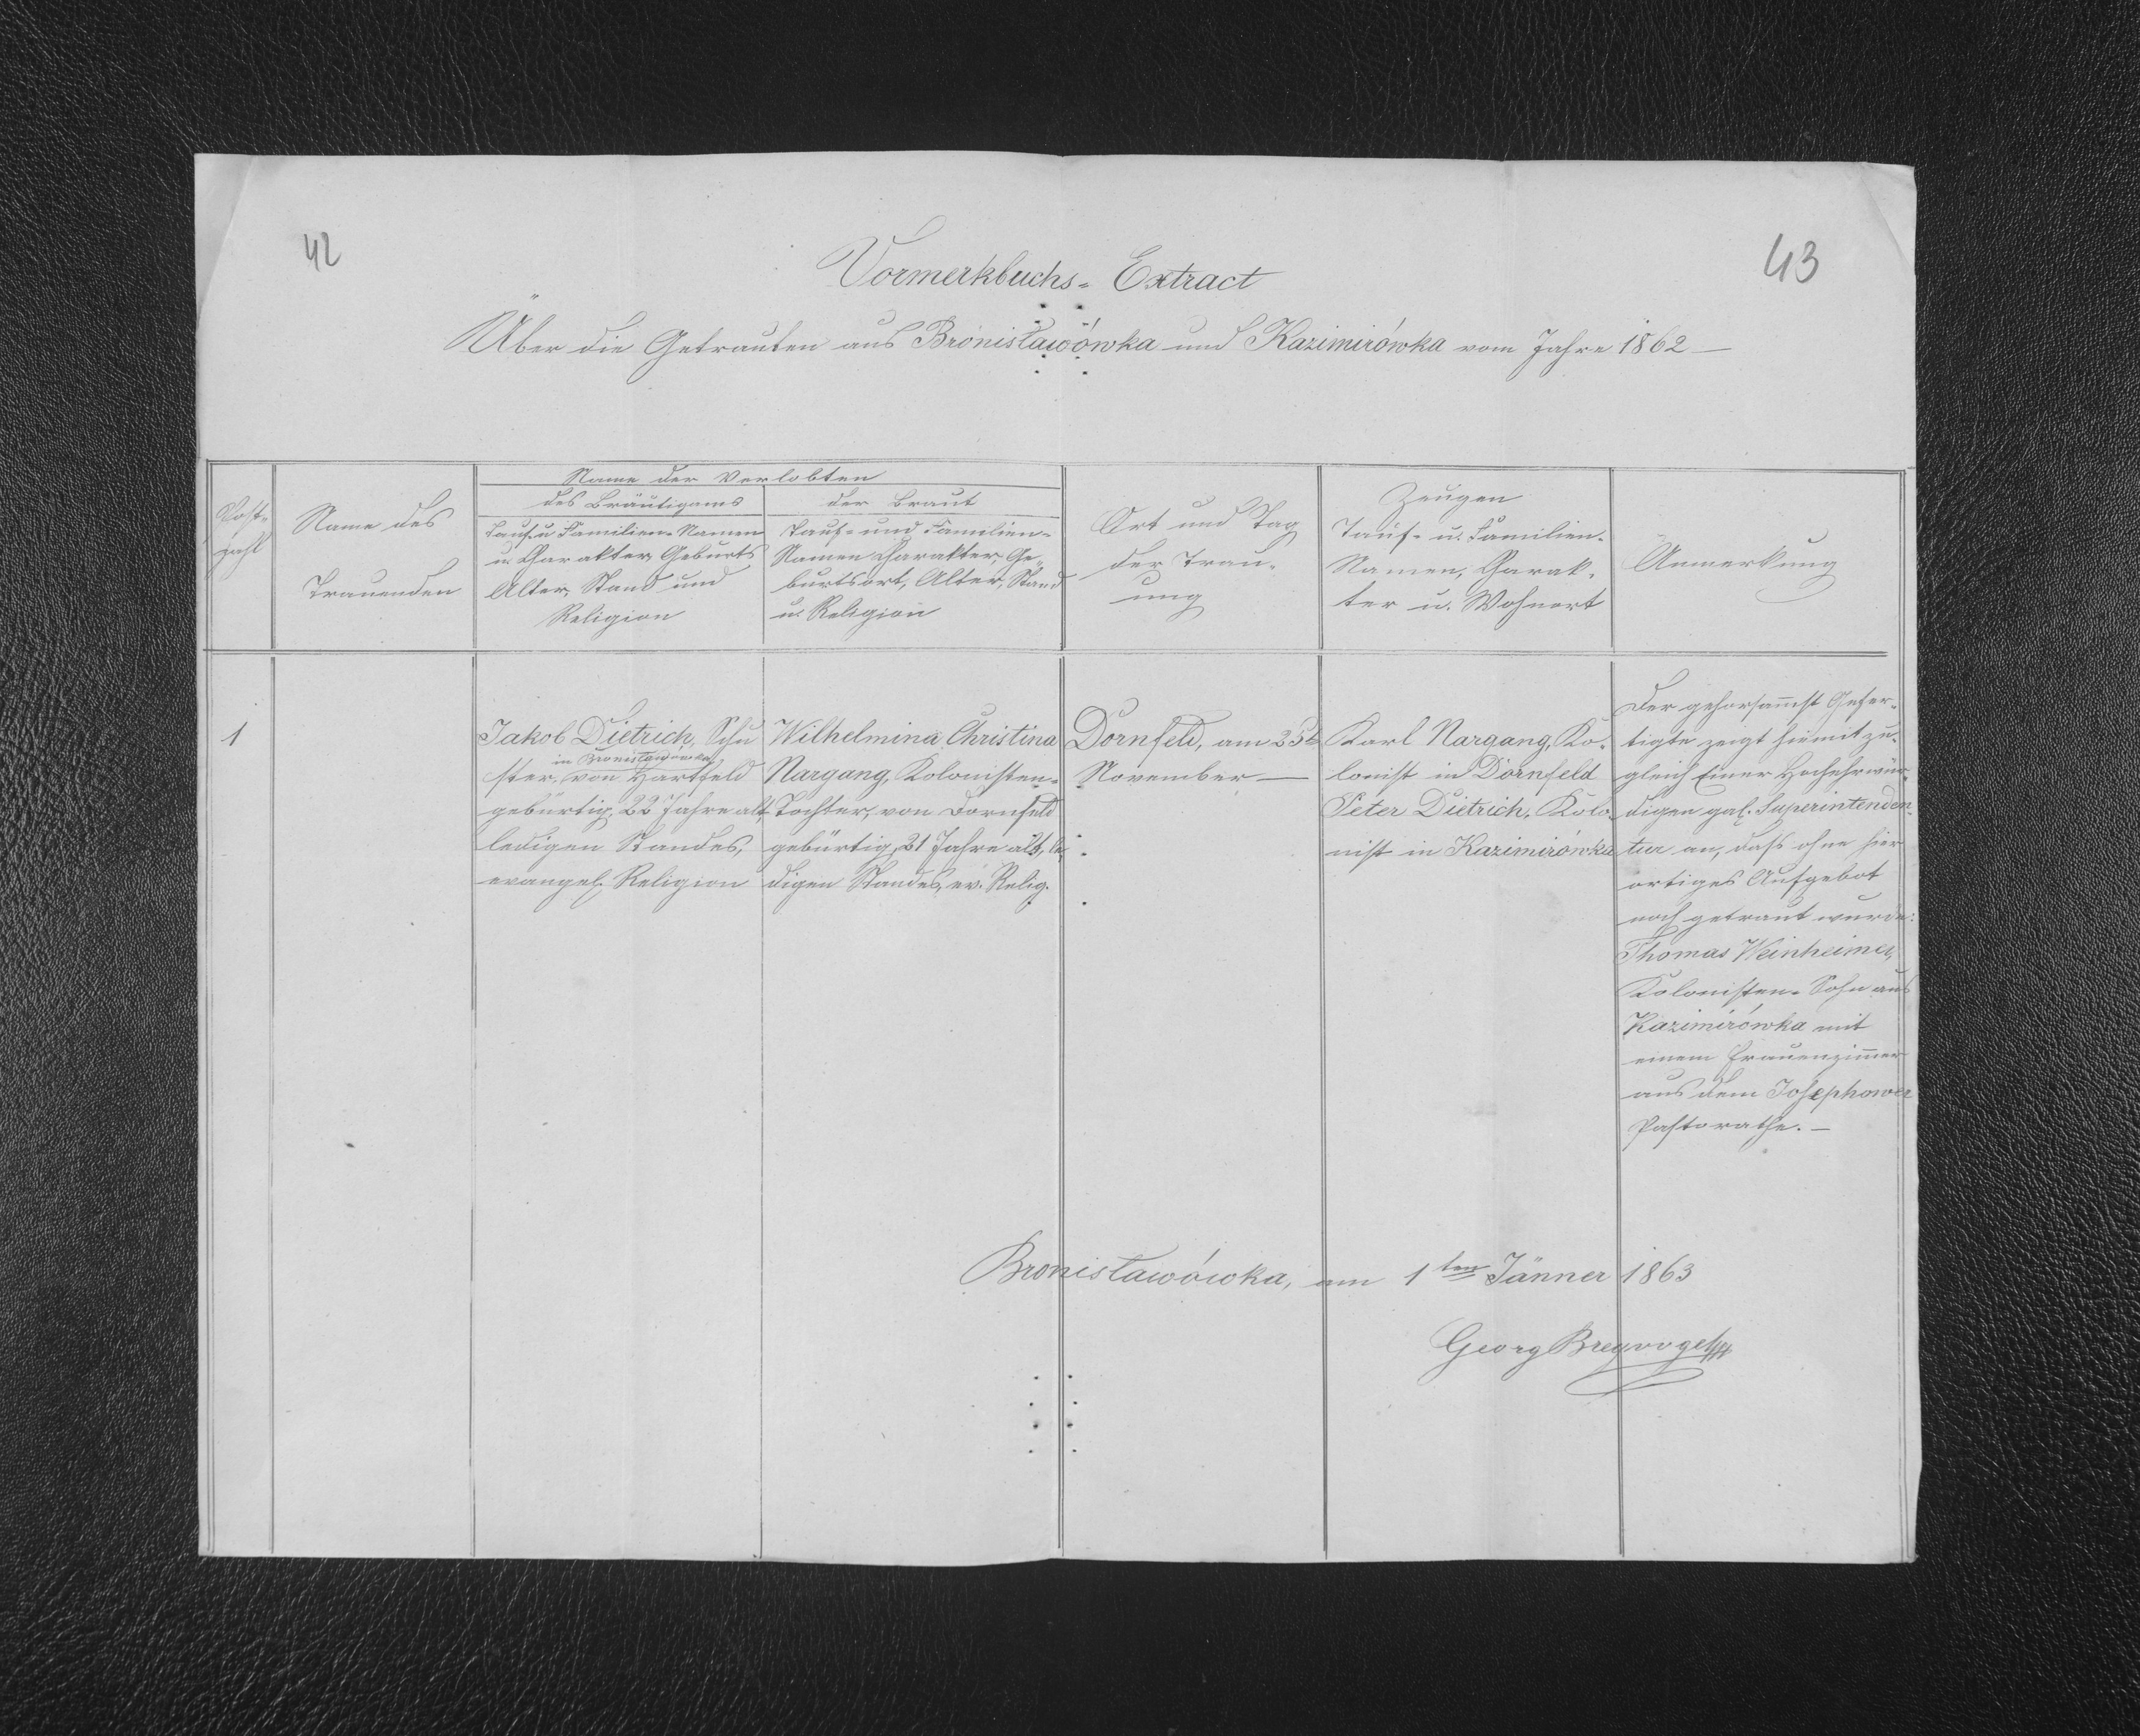 42
43
Vormerkbuchs-Extract
Über die Getrauten aus Bronisławówka und Kazimirówka vom Jahre 1862 —
Post-
zahl
Name des
Trauenden
Name der Verlobten
des Bräutigams
Tauf- u. Familien-Namen
u. Charakter, Geburts
Alter, Stand und
Religion
der Braut
Tauf- und Familien-
Namen, Charakter, Ge-
burtsort, Alter, Stand
u. Religion
Ort und Tag
der Trau-
ung
Zeugen
Tauf- u. Familien-
Namen, Charak-
ter u. Wohnort
Anmerkung
1
Jakob Dietrich, Schu
in Bronisławówka
ster, von Hartfeld
gebürtig, 22 Jahre alt,
ledigen Standes,
evangel. Religion
Wilhelmina Christina
Nargang, Kolonisten-
Tochter, von Dornfeld
gebürtig, 21 Jahre alt, le-
digen Standes, ev. Relig.
Dornfeld, am 25t
November —
Karl Nargang, Ko-
lonist in Dornfeld
Peter Dietrich, Kolo-
nist in Kazimirówka
Der gehorsamst Gefer-
tigte zeigt hiemit zu-
gleich Einer Hochehrwür-
digen gal. Superintenden-
tur an, daß ohne hier
ortiges Aufgebot
noch getraut wurde:
Thomas Weinheimer,
Kolonisten-Sohn aus
Kazimirówka mit
einem Frauenzimmer
aus dem Josephower
Pastorathe. —
Bronisławówka, am 1ten Jänner 1863
Georg Breyvogel